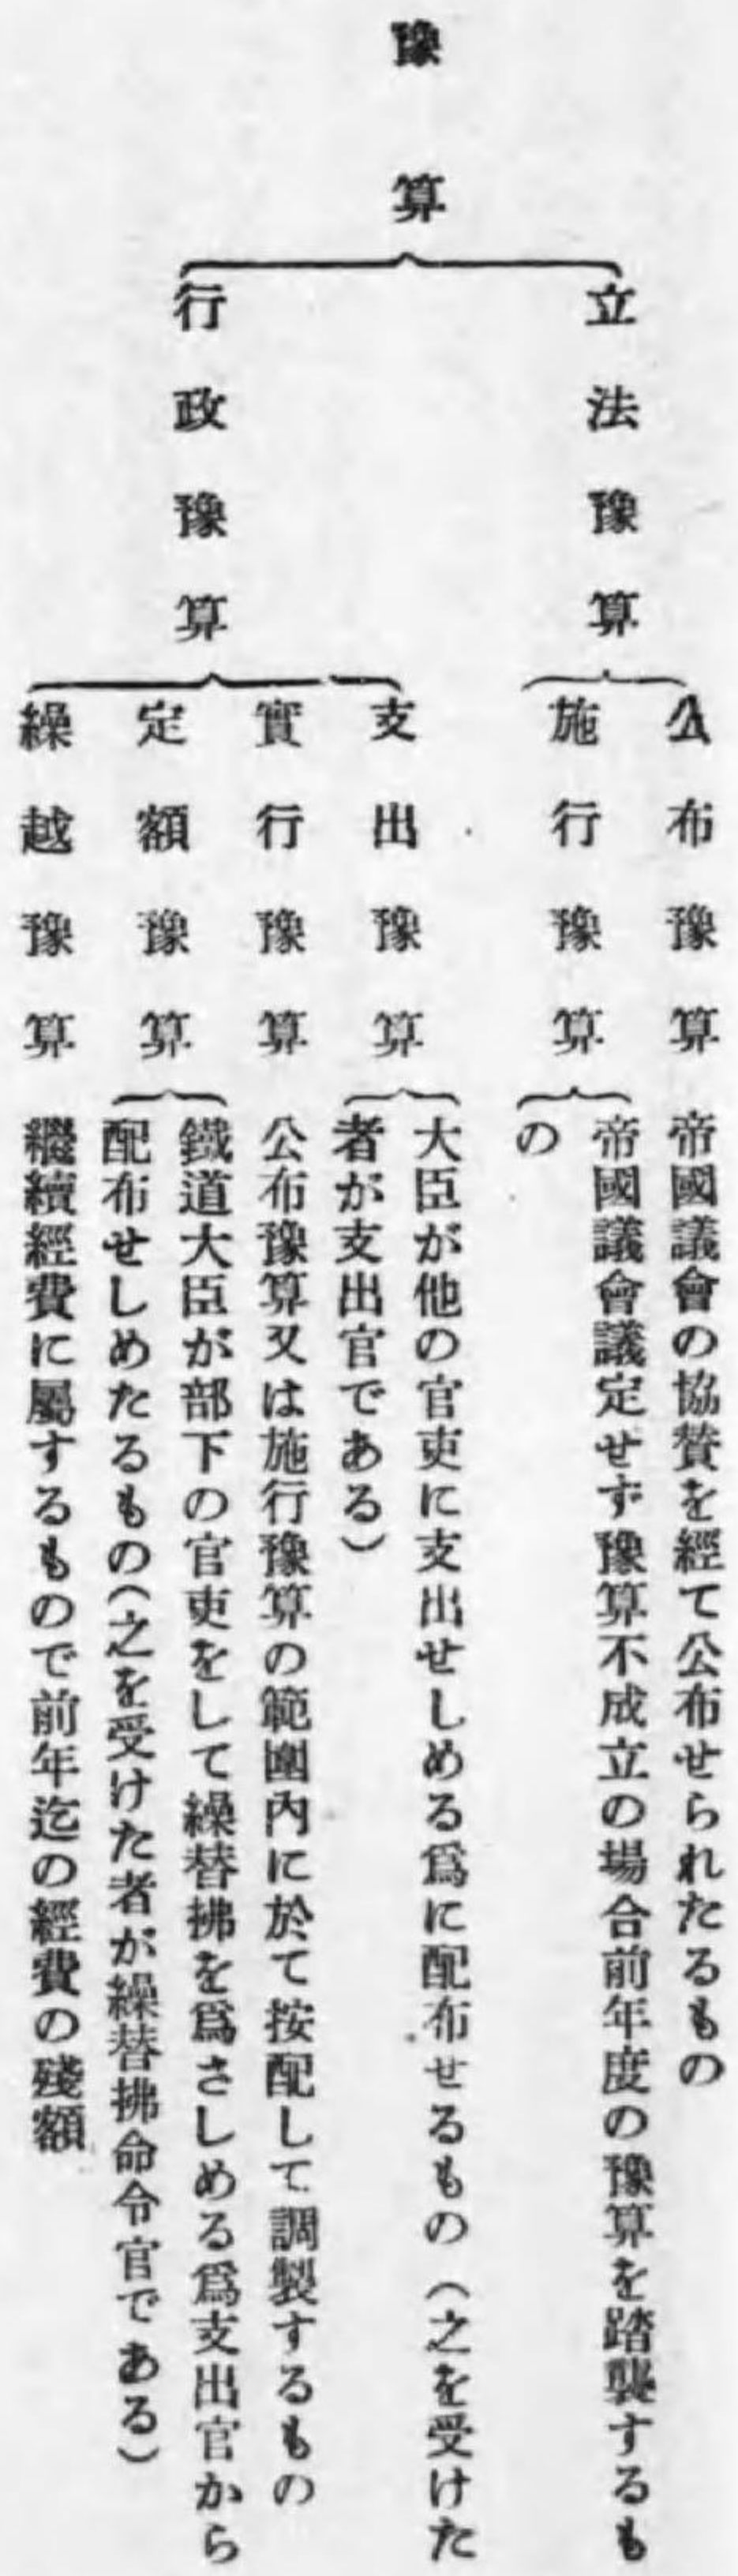 豫算
立法豫算
公布豫算
帝國議會の協賛を經て公布せられたるもの
施行豫算
帝國議會議定せず豫算不成立の場合前年度の豫算を踏襲するも
の
行政豫算
支出豫算
大臣が他の官吏に支出せしめる爲に配布せるもの（之を受けた
者が支出官である）
實行豫算
公布豫算又は施行豫算の範圍內に於て按配して調製するもの
定額豫算
鐵道大臣が部下の官吏をして繰替拂を爲さしめる爲支出官から
配布せしめたるもの（之を受けた者が繰替拂命令官である）
繰越豫算
繼續經費に屬するもので前年迄の經費の殘額